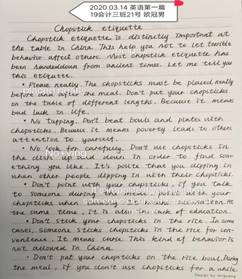 2020.03.14 英语第一篇
19会计三班21号 欧冠男
Chopstick etiquette
Chopstick etiquette is distinctly important at
the table in China. This help you not to let terrible
behavior affect others. Most chopstick etiquette has
been handeddown from ancient times. Let me tell you
this etiquette.
• Please neatly. The chopsticks must be placed neatly
before and after the meal. Don't put your chopsticks
on the table of different lengths. Because it means
bad luck in life.
• No Tapping. Don't beat bowls and plates with
chopsticks. Because it means poverty leads to others
attention to yourself.
• No for carefully. Don't use chopsticks in
the dish up and down in order to find some
thing you like. It's polite that you dipping in
when other people dipping in with their chopsticks
• Don't point with your chopsticks, if you talk
to someone during the meal, point with your
chopsticks when
the same time, it is a lack of education.
• Don't stick your chopsticks in the rice. In some
cases, someone sticks chopsticks in the rice for con-
venience. It means curse. This kind of behavior is
not allowed in China.
• Don't put your chopsticks on the rice bowl during
the meal. If you don't use chopsticks for a while,